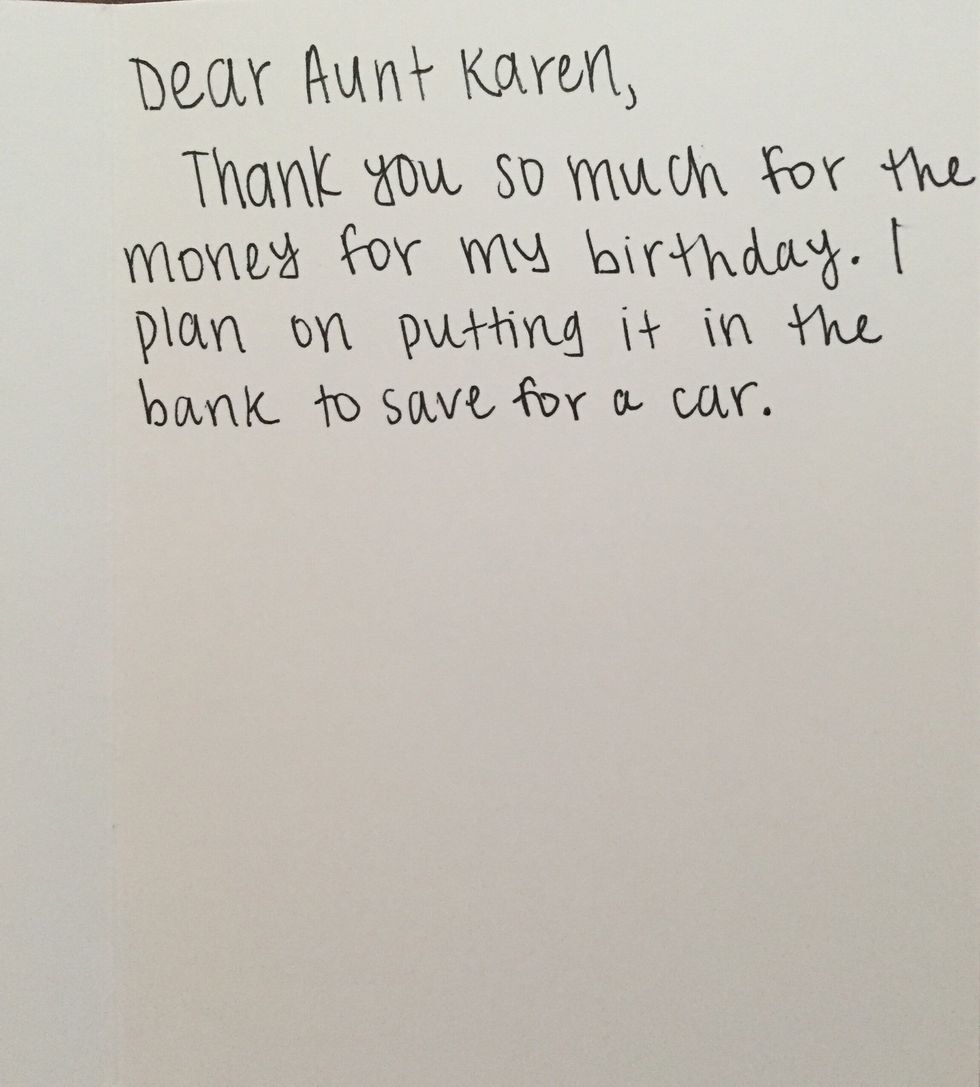 Dear Aunt Karen,
Thank you so much for the
money for my birthday. I
plan on putting it in the
bank to save for a car.